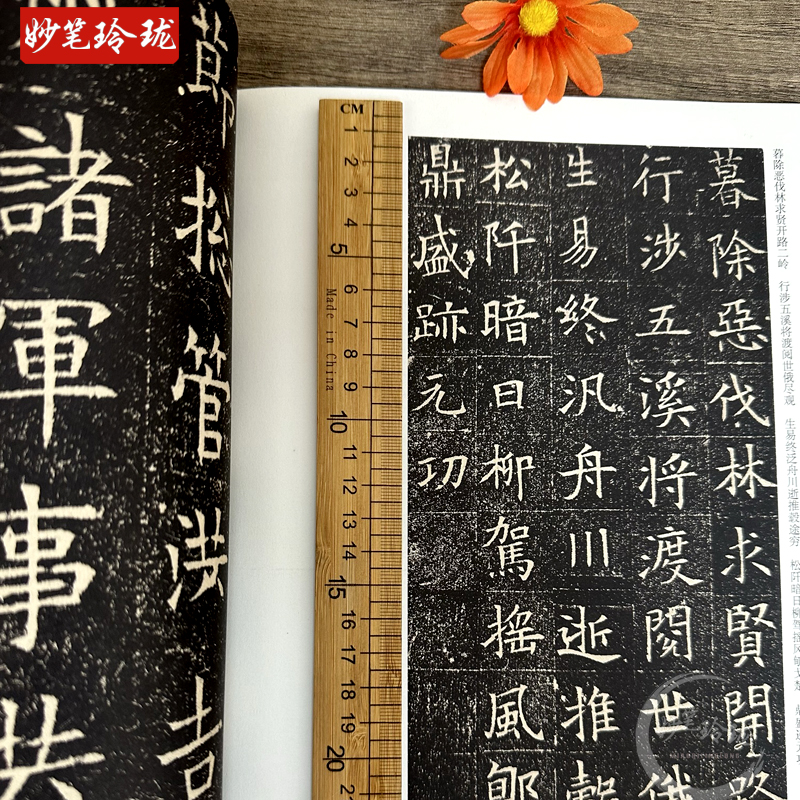 妙笔玲珑
莭揔管洪吉
諸軍事
CM
1
2
3
4
5
6
7
8
9
10
11
12
13
14
15
16
17
18
19
20
Made in China
暮除惡伐林求賢開路
行涉五溪将渡閱世俄
生易終汎舟川逝推轂
松阡暗日柳駕揺風郇
鼎盛跡元功
暮除恶伐林求贤开路二岭 行涉五溪将渡阅世俄尽观 生易终泛舟川逝推毂途穷 松阡暗日柳驾摇风